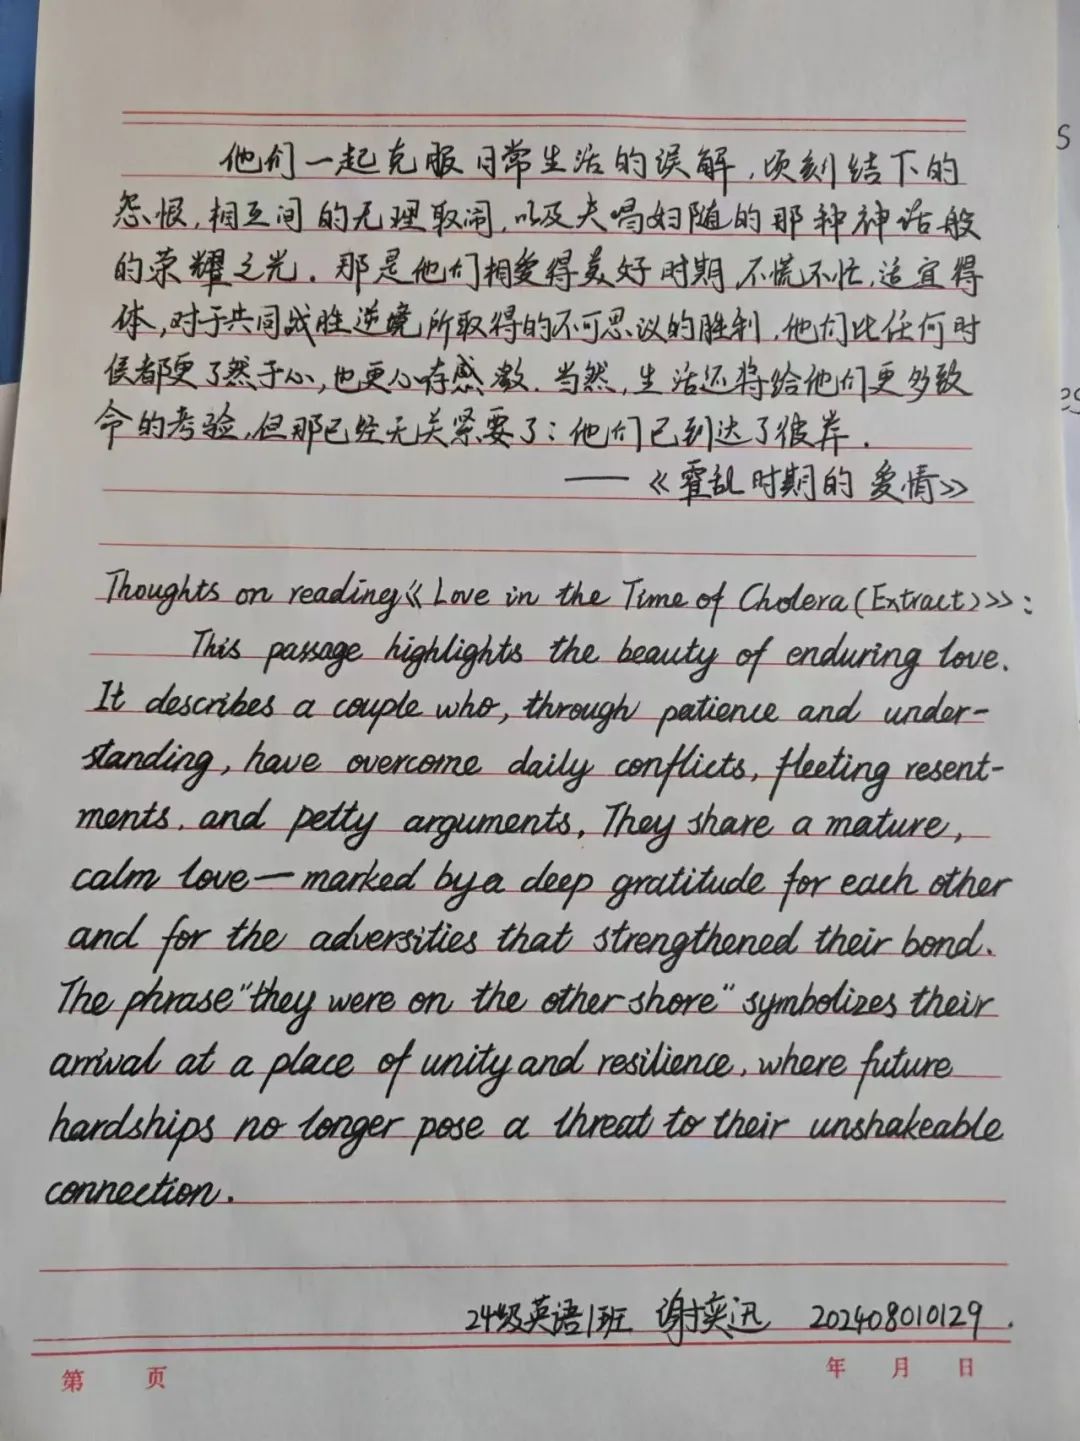 他们一起克服日常生活的误解,顷刻结下的
怨恨,相互间的无理取闹,以及夫唱妇随的那种神话般
的荣耀之光.那是他们相爱得美好时期,不慌不忙,适宜得
体,对于共同战胜逆境所取得的不可思议的胜利,他们比任何时
侯都更了然于心,也更心存感激.当然,生活还将给他们更多致
命的考验,但那已经无关紧要了:他们已到达了彼岸.
——《霍乱时期的爱情》
Thoughts on reading《Love in the Time of Cholera(Extract)》:
This passage highlights the beauty of enduring love.
It describes a couple who, through patience and under-
standing, have overcome daily conflicts, fleeting resent-
ments, and petty arguments, They share a mature,
calm love—marked by a deep gratitude for each other
and for the adversities that strengthened their bond.
The phrase"they were on the other shore"symbolizes their
arrival at a place of unity and resilience, where future
hardships no longer pose a threat to their unshakeable
connection.
24级英语1班 谢奕迅 202408010129.
第 页 年 月 日